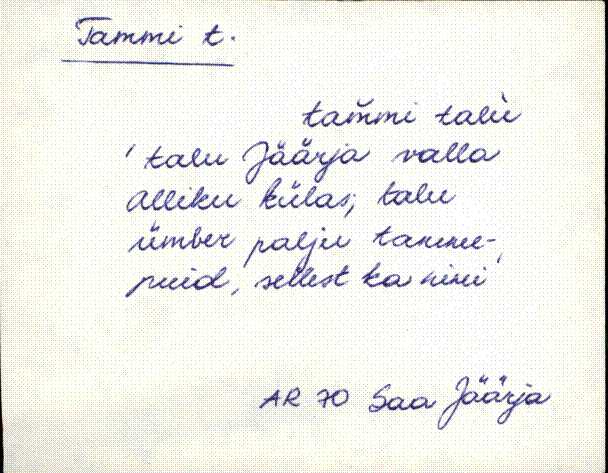 Tammi t.
tam̆mi talù
'talu Jäärja valla
Alliku külas; talu
ümber palju tamme-
puid, sellest ka nimi'
AR 70 Saa Jäärja